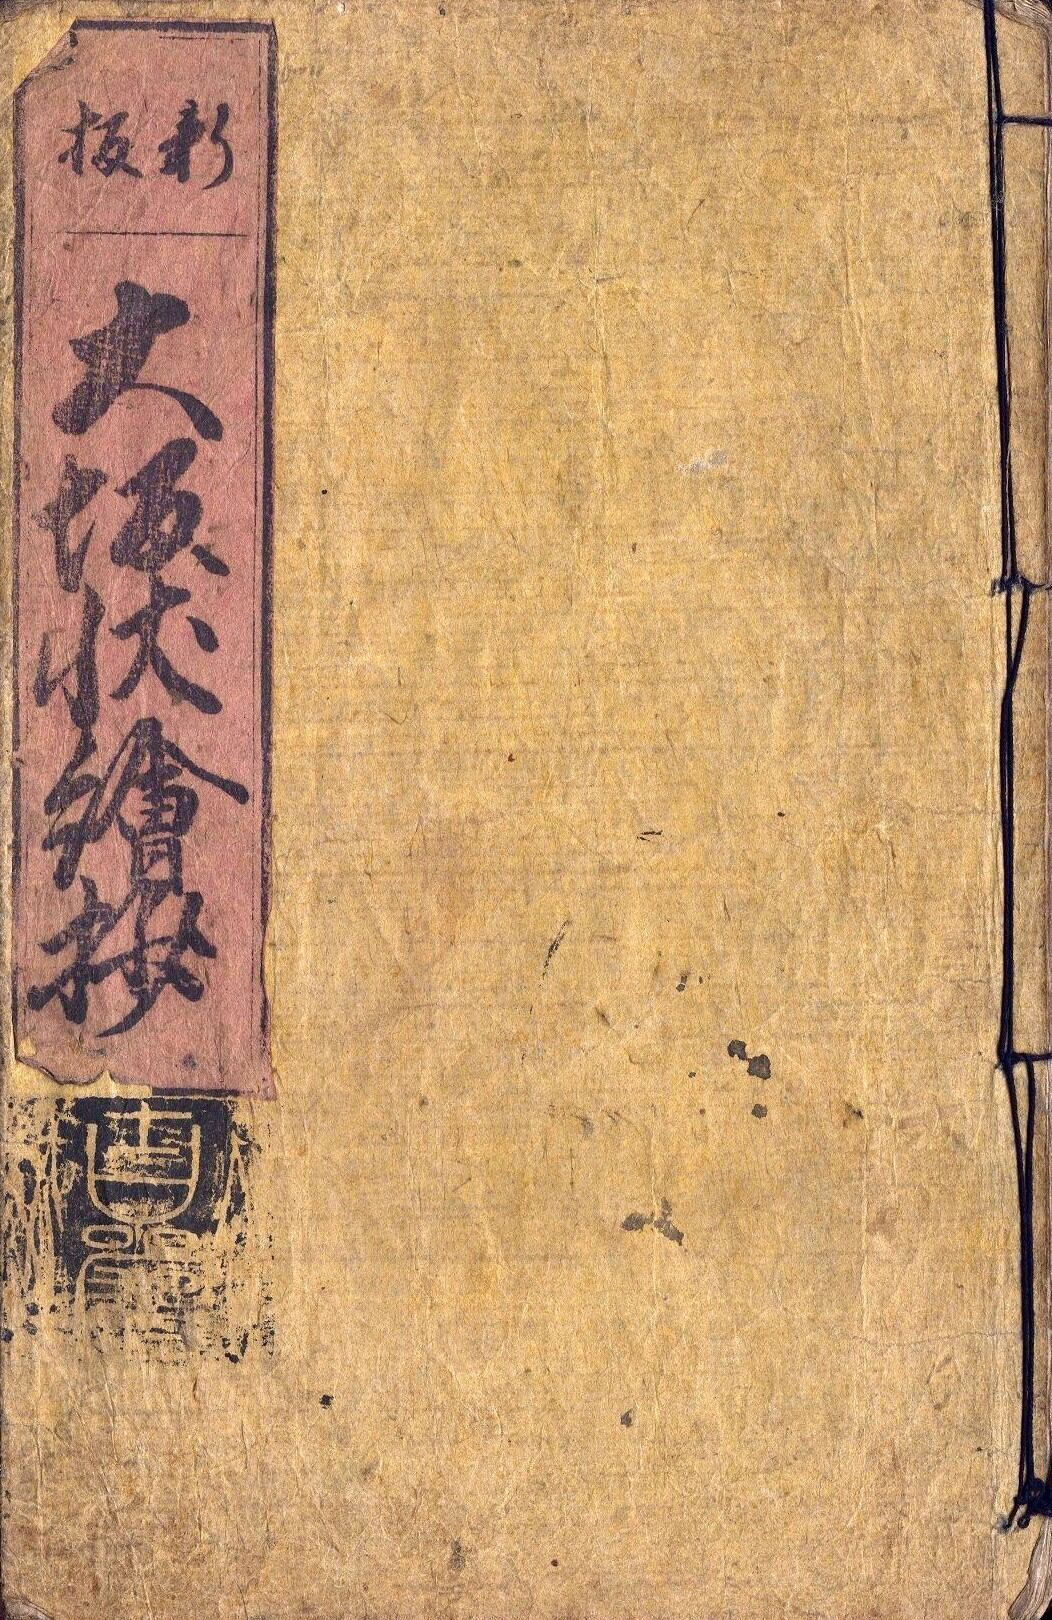 新板
大坂状繪抄